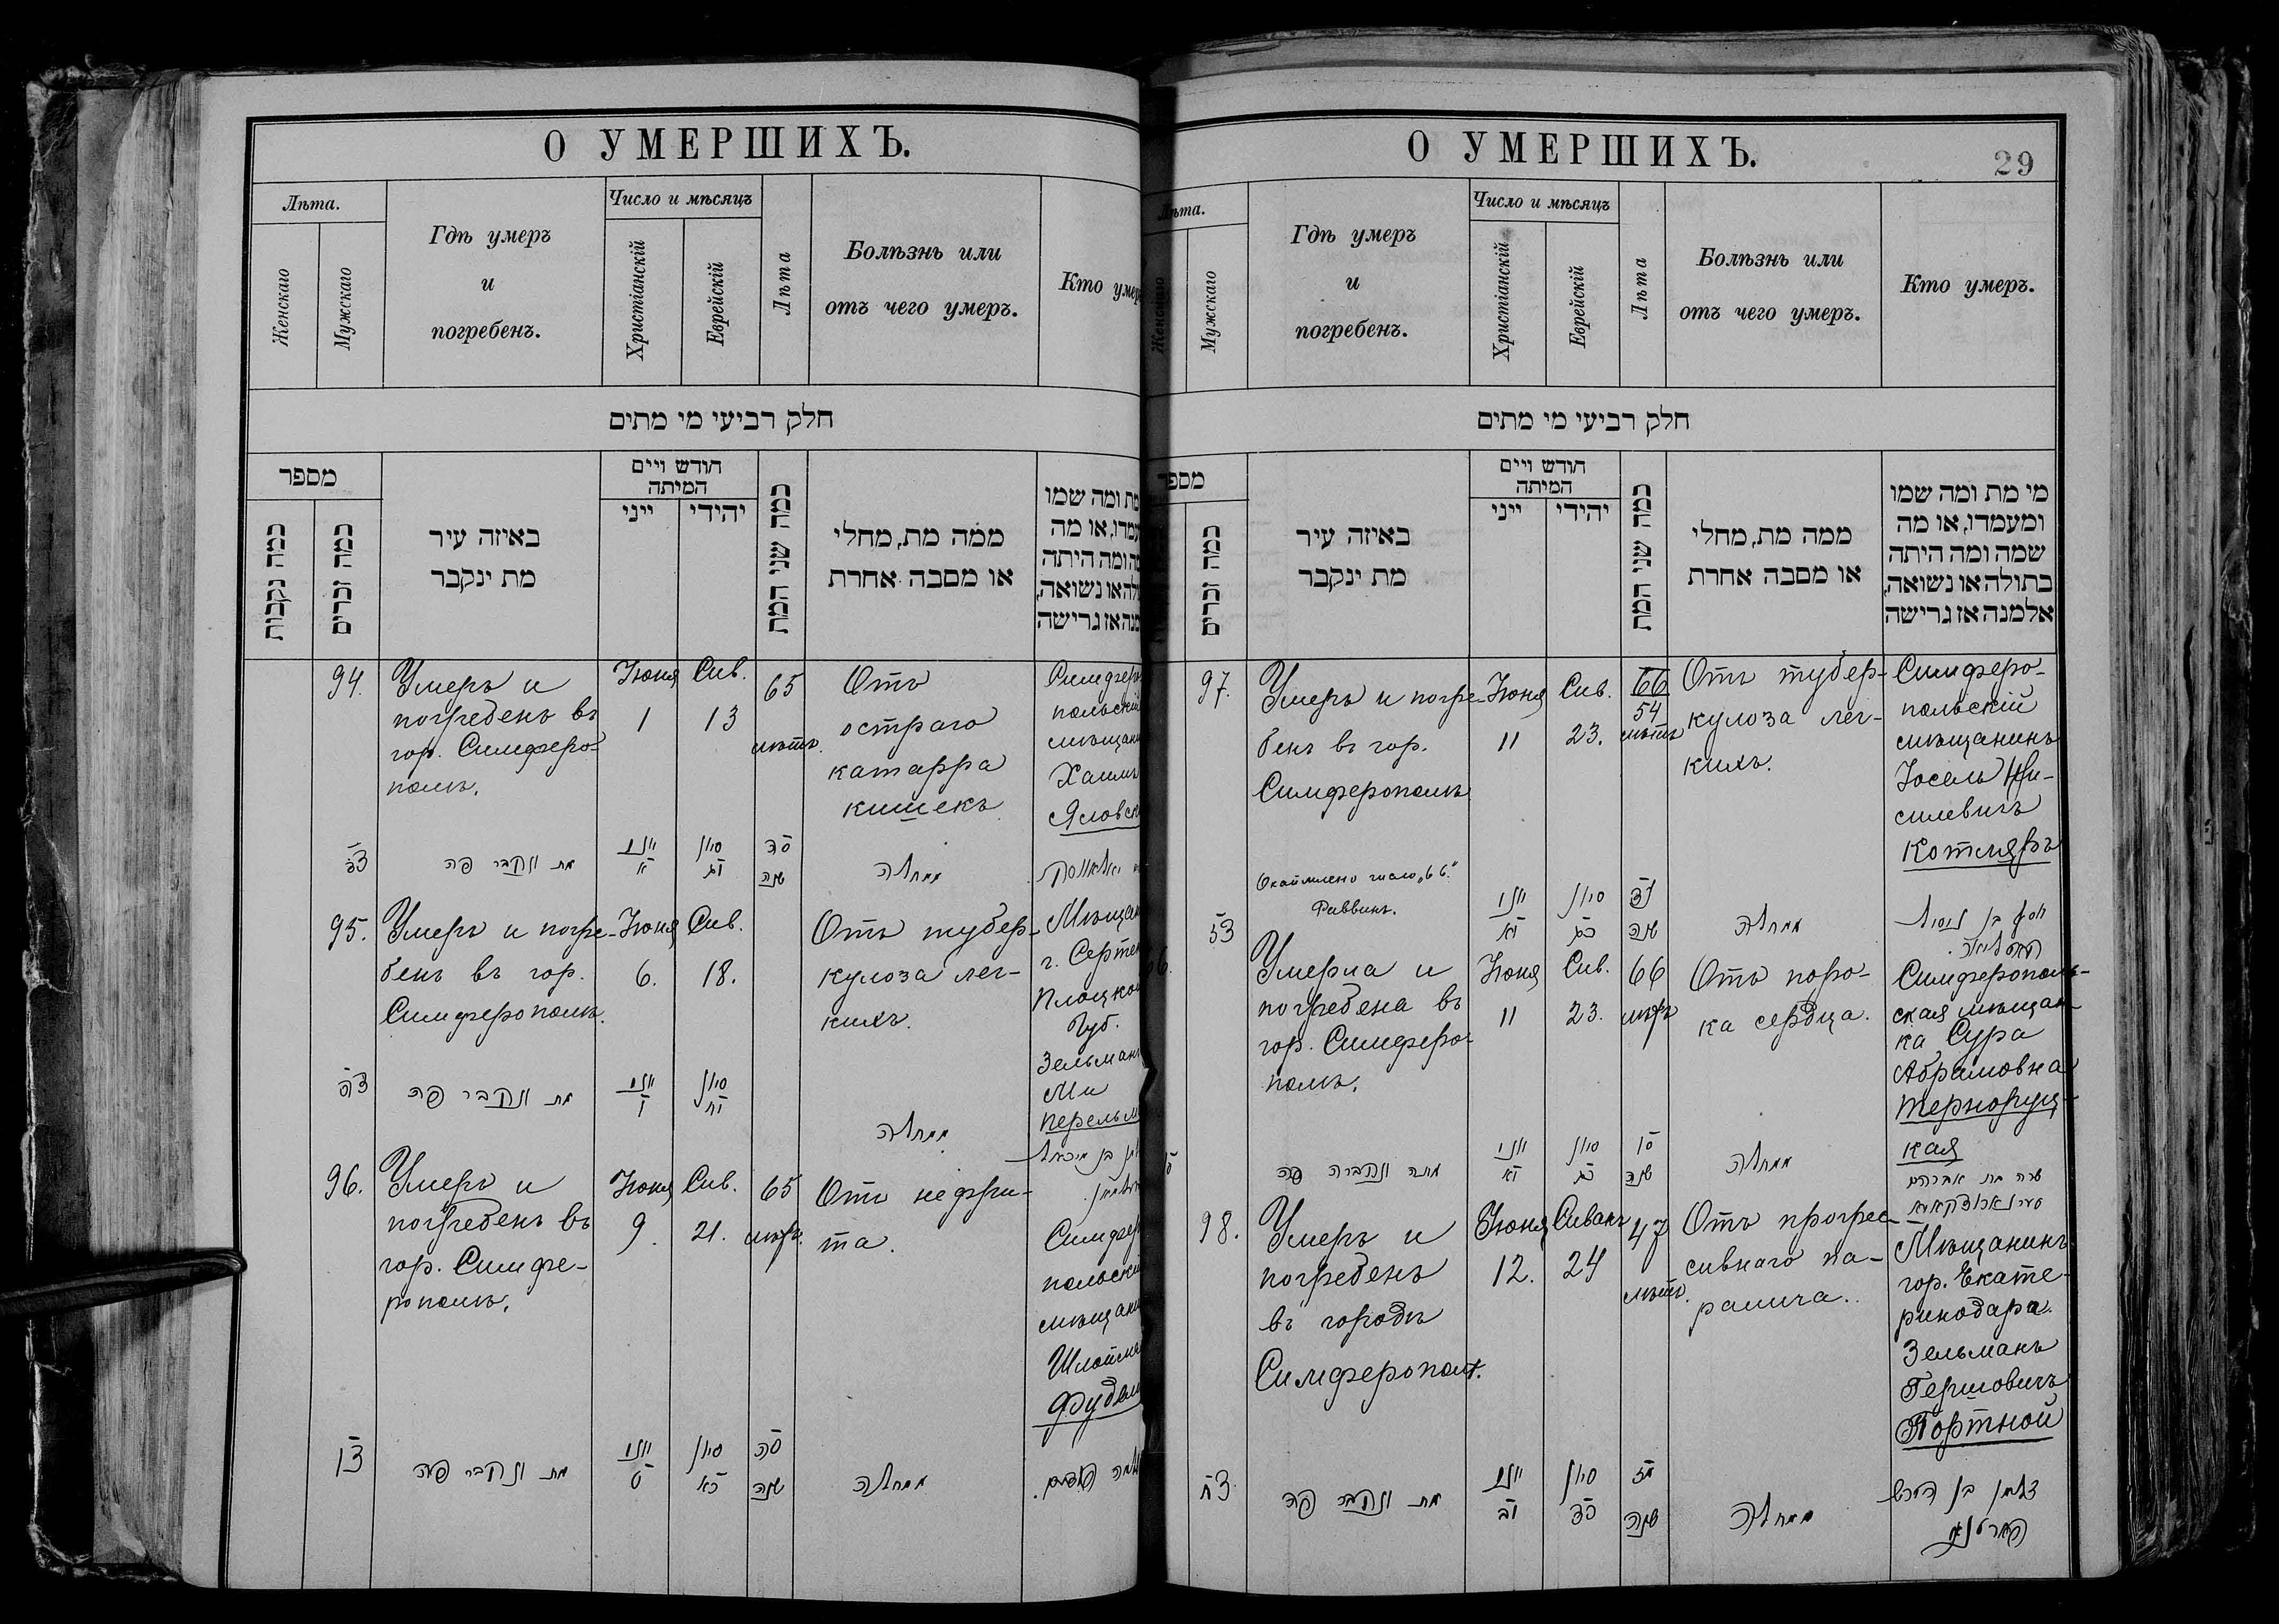 О УМЕРШИХЪ.
Лѣта.
Женскаго
Мужскаго
Гдѣ умеръ
и
погребенъ.
Число и мѣсяцъ
Христіанскій
Еврейскій
Лѣта
Болѣзнь или
отъ чего умеръ.
Кто умер
חלק רביעי מי מתים
מספר
כמה נקבות
כמה זכרים
באיזה עיר
מת ינקבר
חודש ויים
המיתה
ייני
יהידי
כמה שני המת
ממה מת, מחלי
או מסבה אחרת
מת ומה שמו
עמדו, או מה
מה ומה היתה
ולה או נשואה,
מנה אז גרישה
94.
Умеръ и
погребенъ въ
гор. Симферо-
полѣ.
Іюня
1
Сив.
13
65
лѣтъ.
Отъ
остраго
катарра
кишекъ
Симферо
польскій
мѣщани
Хаимъ
Яловск
צד
מת ונקבר פה
יוני
א
סיון
יג
סה
שנה
ממחלה
95.
Умеръ и погре-
бенъ въ гор.
Симферополѣ.
Іюня
6.
Сив.
18.
Отъ тубер-
кулоза лег-
кихъ.
Мѣщан
г. Серпе
Плоцкой
Губ.
Зельманъ
Ми
Перельм
צה
מת ונקבר פה
יוני
ו
סיון
יח
ממחלה
96.
Умеръ и
погребенъ въ
гор. Симфе-
рополѣ.
Іюня
9.
Сив.
21.
65
лѣтъ.
Отъ нефри-
та.
Симфер
польскі
мѣщани
Шлойма
Фудим
צו
מת ונקבר פה
יוני
ט
סיון
כא
סה
שנה
ממחלה
О УМЕРШИХЪ.
29
Лѣта.
Женскаго
Мужскаго
Гдѣ умеръ
и
погребенъ.
Число и мѣсяцъ
Христіанскій
Еврейскій
Лѣта
Болѣзнь или
отъ чего умеръ.
Кто умеръ.
חלק רביעי מי מתים
מספר
כמה זכרים
באיזה עיר
מת ינקבר
חודש ויים
המיתה
ייני
יהידי
כמה שני המת
ממה מת, מחלי
או מסבה אחרת
מי מת ומה שמו
ומעמדו, או מה
שמה ומה היתה
בתולה או נשואה,
אלמנה אז גרישה
97.
Умеръ и погре-
бенъ въ гор.
Симферополѣ
Іюня
11
Сив.
23.
66
54
лѣтъ
Отъ тубер-
кулоза лег-
кихъ.
Симферо-
польскій
мѣщанинъ
Іосель Ни-
силевичъ
Котляръ
Окаймлено число „66."
Раввинъ.
צז
יוני
יא
סיון
כג
נד
שנה
ממחלה
Умерла и
погребена въ
гор. Симферо-
полѣ.
Іюня
11
Сив.
23.
66
лѣтъ
Отъ поро-
ка сердца.
Симферополь-
ская мѣщан-
ка Сура
Абрамовна
Терноруц-
кая
מתה ונקברה פה
יוני
יא
סיון
כג
סו
שנה
ממחלה
שרה בת אברהם
98.
Умеръ и
погребенъ
въ городѣ
Симферополѣ.
Іюня
12.
Сиванъ
24
47
лѣтъ.
Отъ прогрес-
сивнаго па-
ралича.
Мѣщанинъ
гор. Екате-
ринодара
Зельманъ
Гершовичъ
Портной
צח
מת ונקבר פה
יוני
יב
סיון
כד
מז
שנה
ממחלה
זלמן בן הירש